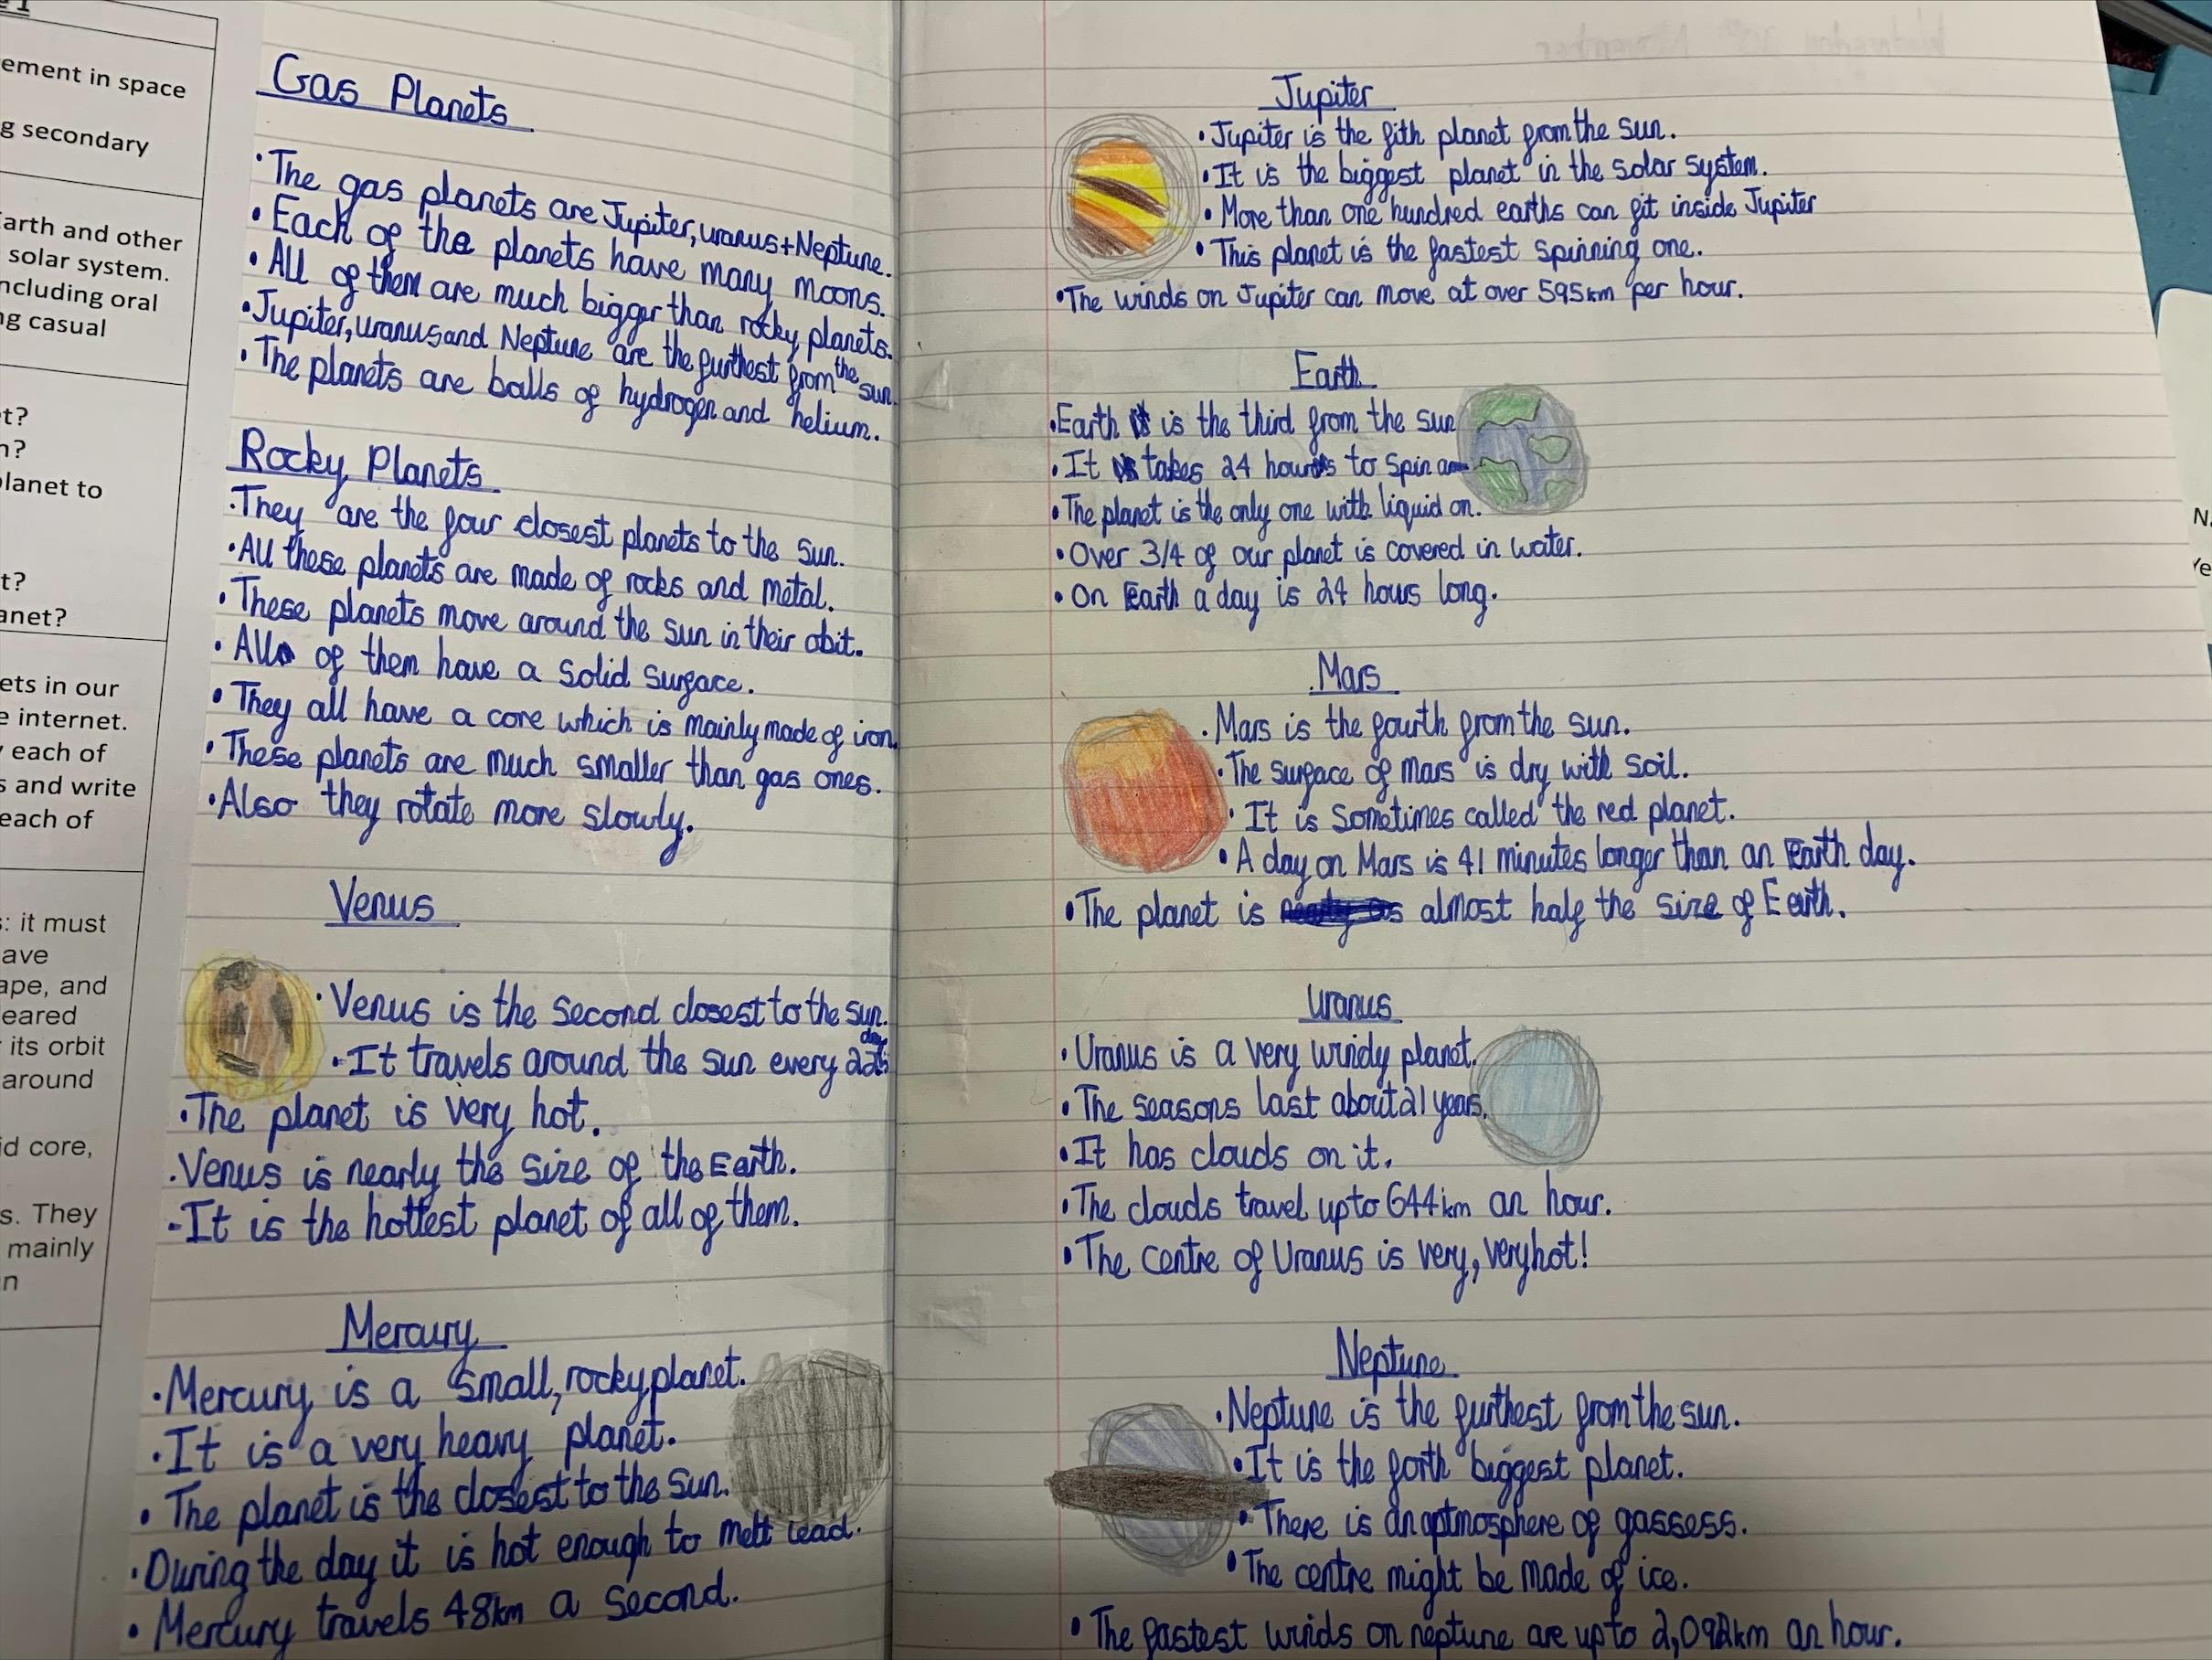 ement in space
g secondary
arth and other
solar system.
ncluding oral
ng casual
et?
n?
planet to
t?
anet?
ets in our
e internet.
each of
s and write
each of
: it must
ave
ape, and
eared
its orbit
around
id core,
s. They
mainly
n
Gas Planets
•The gas planets are Jupiter, uranus+Neptune.
•Each of the planets have many moons.
•All of them are much bigger than rocky planets.
•Jupiter, uranus and Neptune are the furthest from the sun.
•The planets are balls of hydrogen and helium.
Rocky Planets
•They are the four closest planets to the sun.
•All these planets are made of rocks and metal.
•These planets move around the sun in their obit.
•All of them have a solid surface.
•They all have a core which is mainly made of iron.
•These planets are much smaller than gas ones.
•Also they rotate more slowly.
Venus
•Venus is the second closest to the sun.
•It travels around the sun every days
•The planet is very hot.
•Venus is nearly the size of the Earth.
-It is the hottest planet of all of them.
Mercury
•Mercury is a small, rocky planet.
•It is a very heavy planet.
•The planet is the closest to the sun.
•During the day it is hot enough to melt lead.
•Mercury travels 48km a second.
Jupiter
•Jupiter is the fith planet from the sun.
•It is the biggest planet in the solar system.
•More than one hundred earths can fit inside Jupiter
•This planet is the fastest spinning one.
•The winds on Jupiter can move at over 595km per hour.
Earth
•Earth is the third from the sun
•It takes 24 hours to spin
•The planet is the only one with liquid on.
•Over 3/4 of our planet is covered in water.
•On Earth a day is 24 hours long.
Mars
•Mars is the fourth from the sun.
•The surface of mars is dry with soil.
•It is sometimes called the red planet.
•A day on Mars is 41 minutes longer than an Earth day.
•The planet is almost half the size of Earth.
Uranus
•Uranus is a very windy planet.
•The seasons last about 21 years.
•It has clouds on it.
•The clouds travel up to 644km an hour.
•The centre of Uranus is very, very hot!
Neptune
•Neptune is the furthest from the sun.
•It is the forth biggest planet.
•There is an aptmosphere of gassess.
•The centre might be made of ice.
•The fastest winds on neptune are up to km an hour.